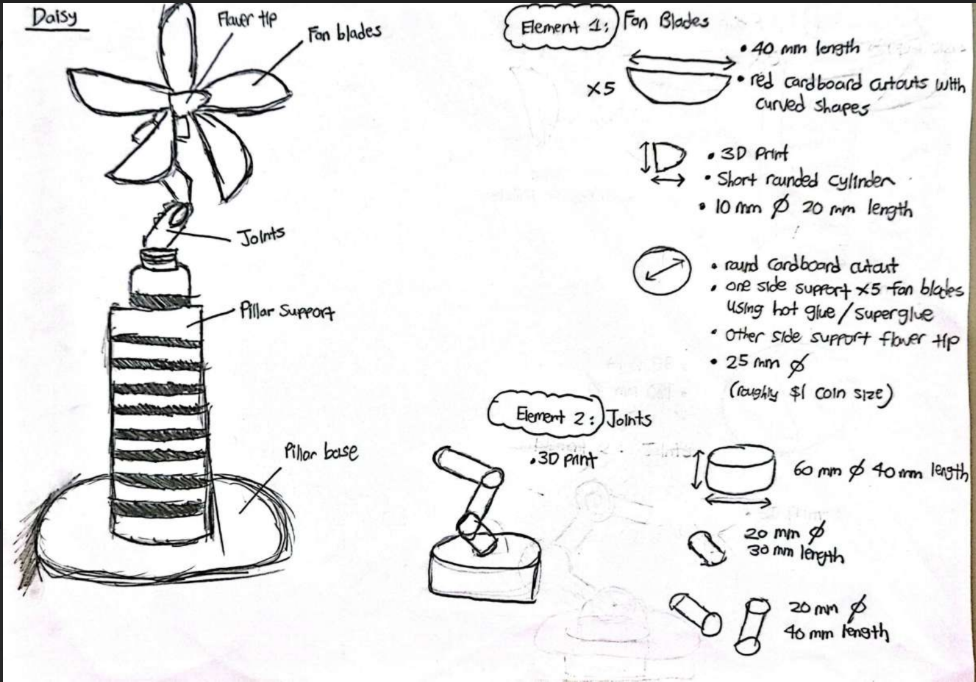 Daisy
Flaver tip
Fan blades
Joints
Pillar Support
Pillar base
Element 1: Fan Blades
x5
• 40 mm length
• red cardboard cutouts with
curved shapes
• 3D Print
• Short rounded cylinder
• 10 mm Ø 20 mm length
• round cardboard cutout
• one side support x5 fan blades
using hot glue/superglue
• other side support flaver tip
• 25 mm Ø
(roughly $1 coin size)
Element 2: Joints
• 3D Print
60 mm Ø 40 mm length
20 mm Ø
30 mm length
20 mm Ø
40 mm length